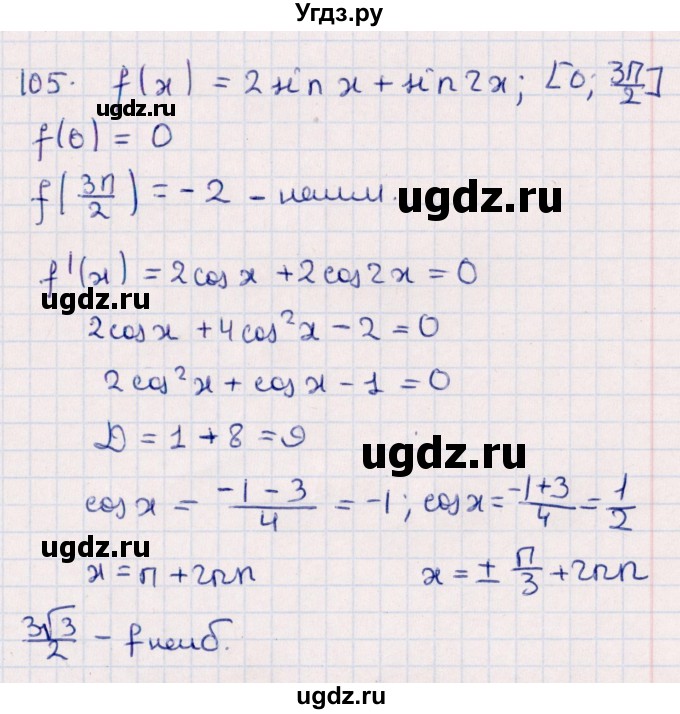 Угдз.ру
105. f(x) = 2sin x + sin 2x; [0; 3π/2]
ugdz.ru
f(0) = 0
f(3π/2) = -2 - наим.
ugdz.ru
f'(x) = 2cos x + 2cos 2x = 0
ugdz.ru
2cos x + 4cos²x - 2 = 0
2cos²x + cos x - 1 = 0
D = 1 + 8 = 9
ugdz.ru
cos x = (-1 - 3)/4 = -1; cos x = (-1 + 3)/4 = 1/2
ugdz.ru
x = π + 2πn x = ± π/3 + 2πn
3√3/2 - f наиб.
ugdz.ru
ugdz.ru